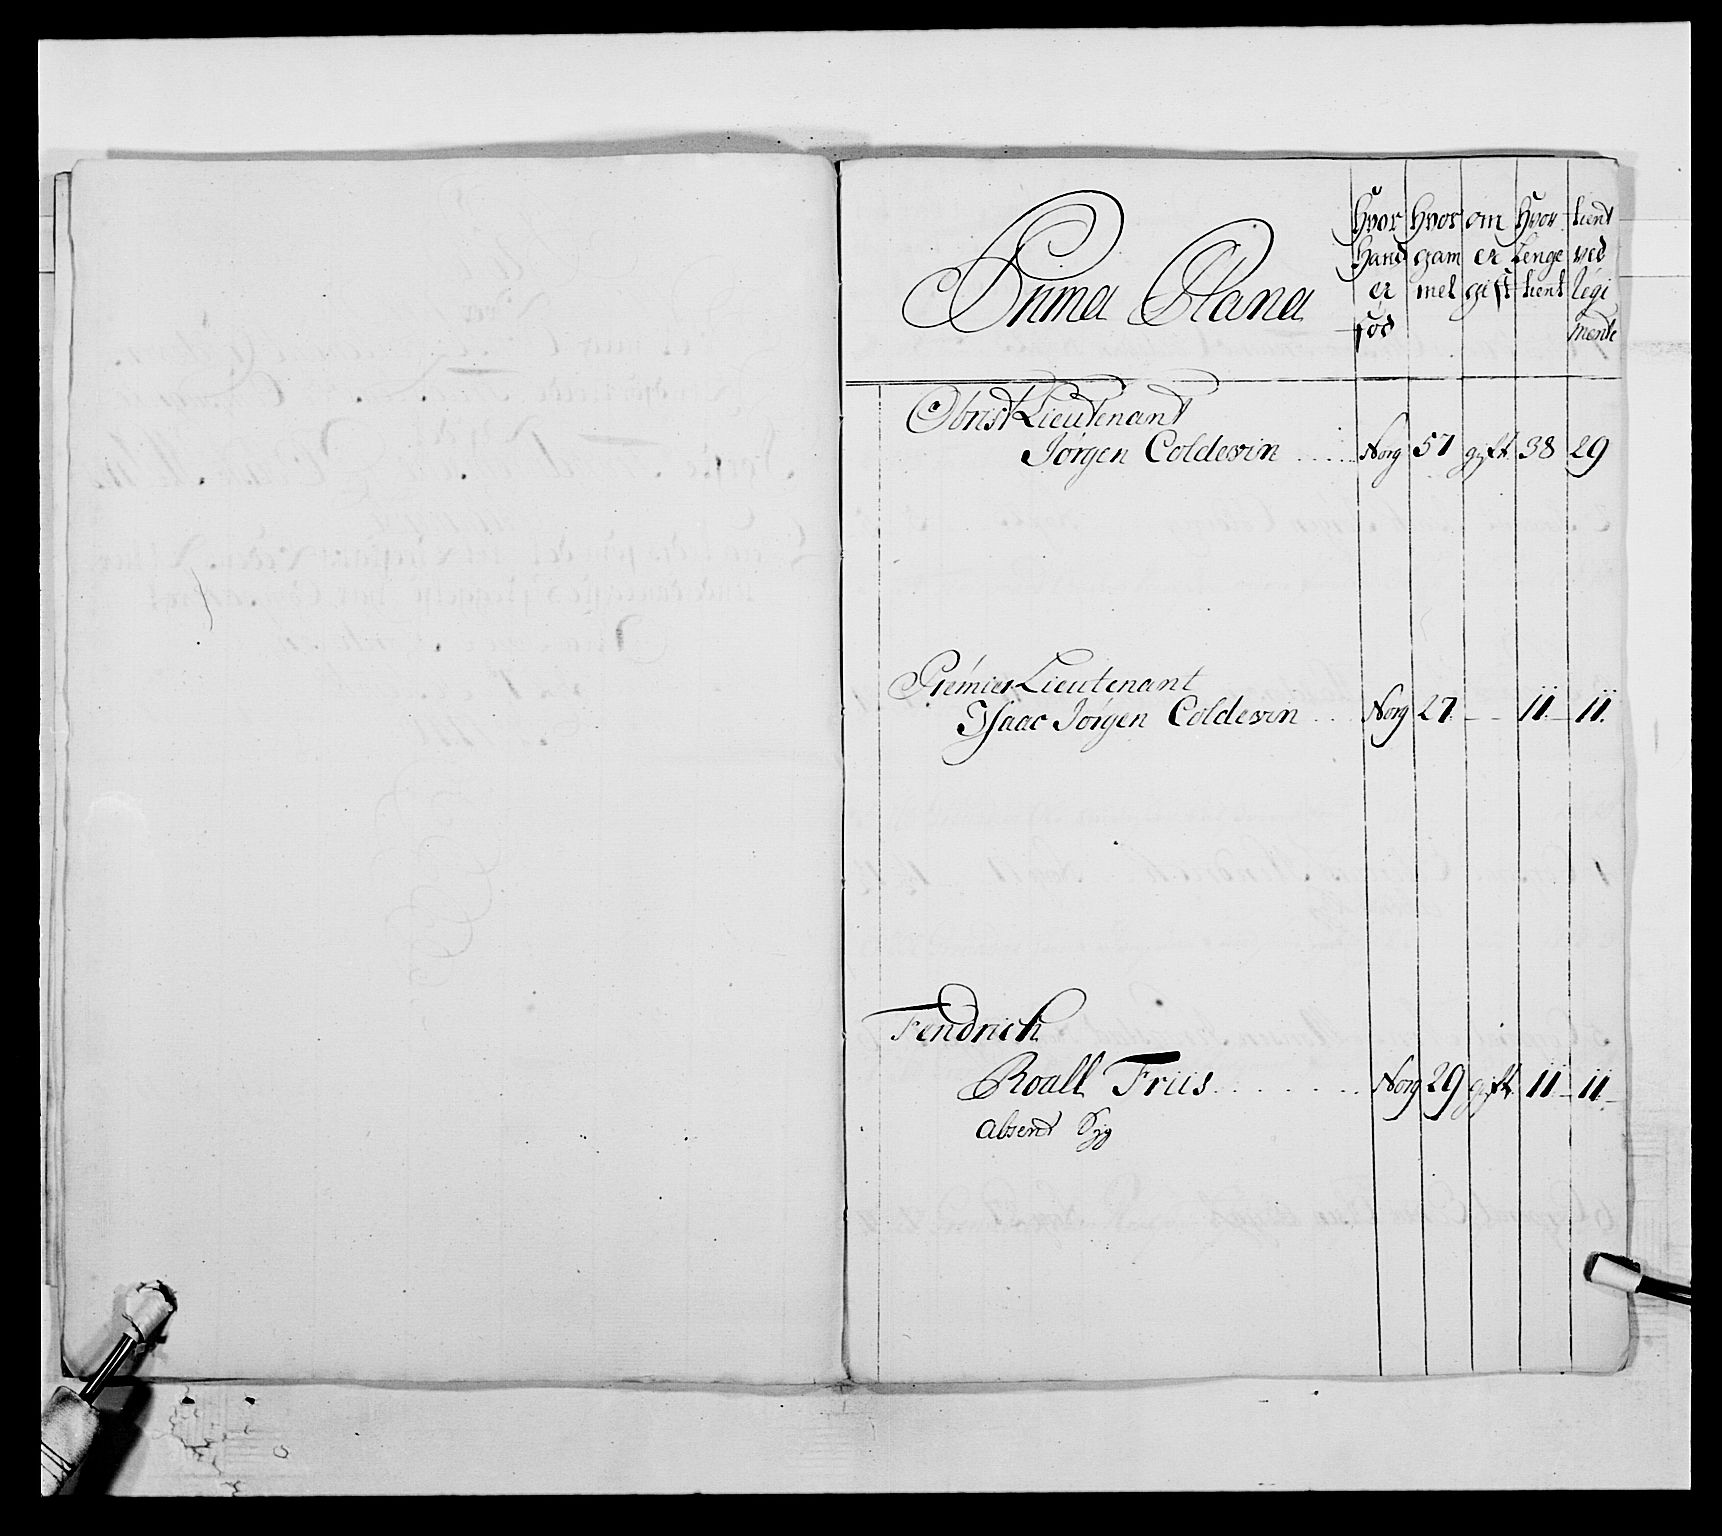 Prima Plana
Hvor Hvor om Hvor tient
Hand gam er Lenge ved
er mel gift tient Regi
fød mente
Obrist Lieutenant
Jørgen Coldevin Norg 57 gift 38 29
Premier Lieutenant
Isaac Jørgen Coldevin Norg 27 11 11
Fendrich
Roall Friis Norg 29 gift 11 11
absent Syg